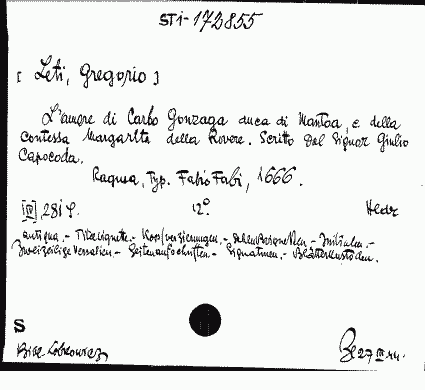 STi-172855
[Leti, Gregorio]
L'amore di Carlo Gonzaga duca di Mantoa, e della
contessa Margarita della Rovere. Scritto Dal Signor Giulio
Capocoda.
Ragusa, Typ. Fabio Fabi, 1666.
[IV] 281 S. 12°.
Antiqua.- Titelvignette.- Kopfverzierungen.- Initialen.-
Zweizeilige Versalien.- Seitenaufschriften.- Signaturen.- Blätterkustoden.
S
Bibl. Lobkowicz
27 III 44.